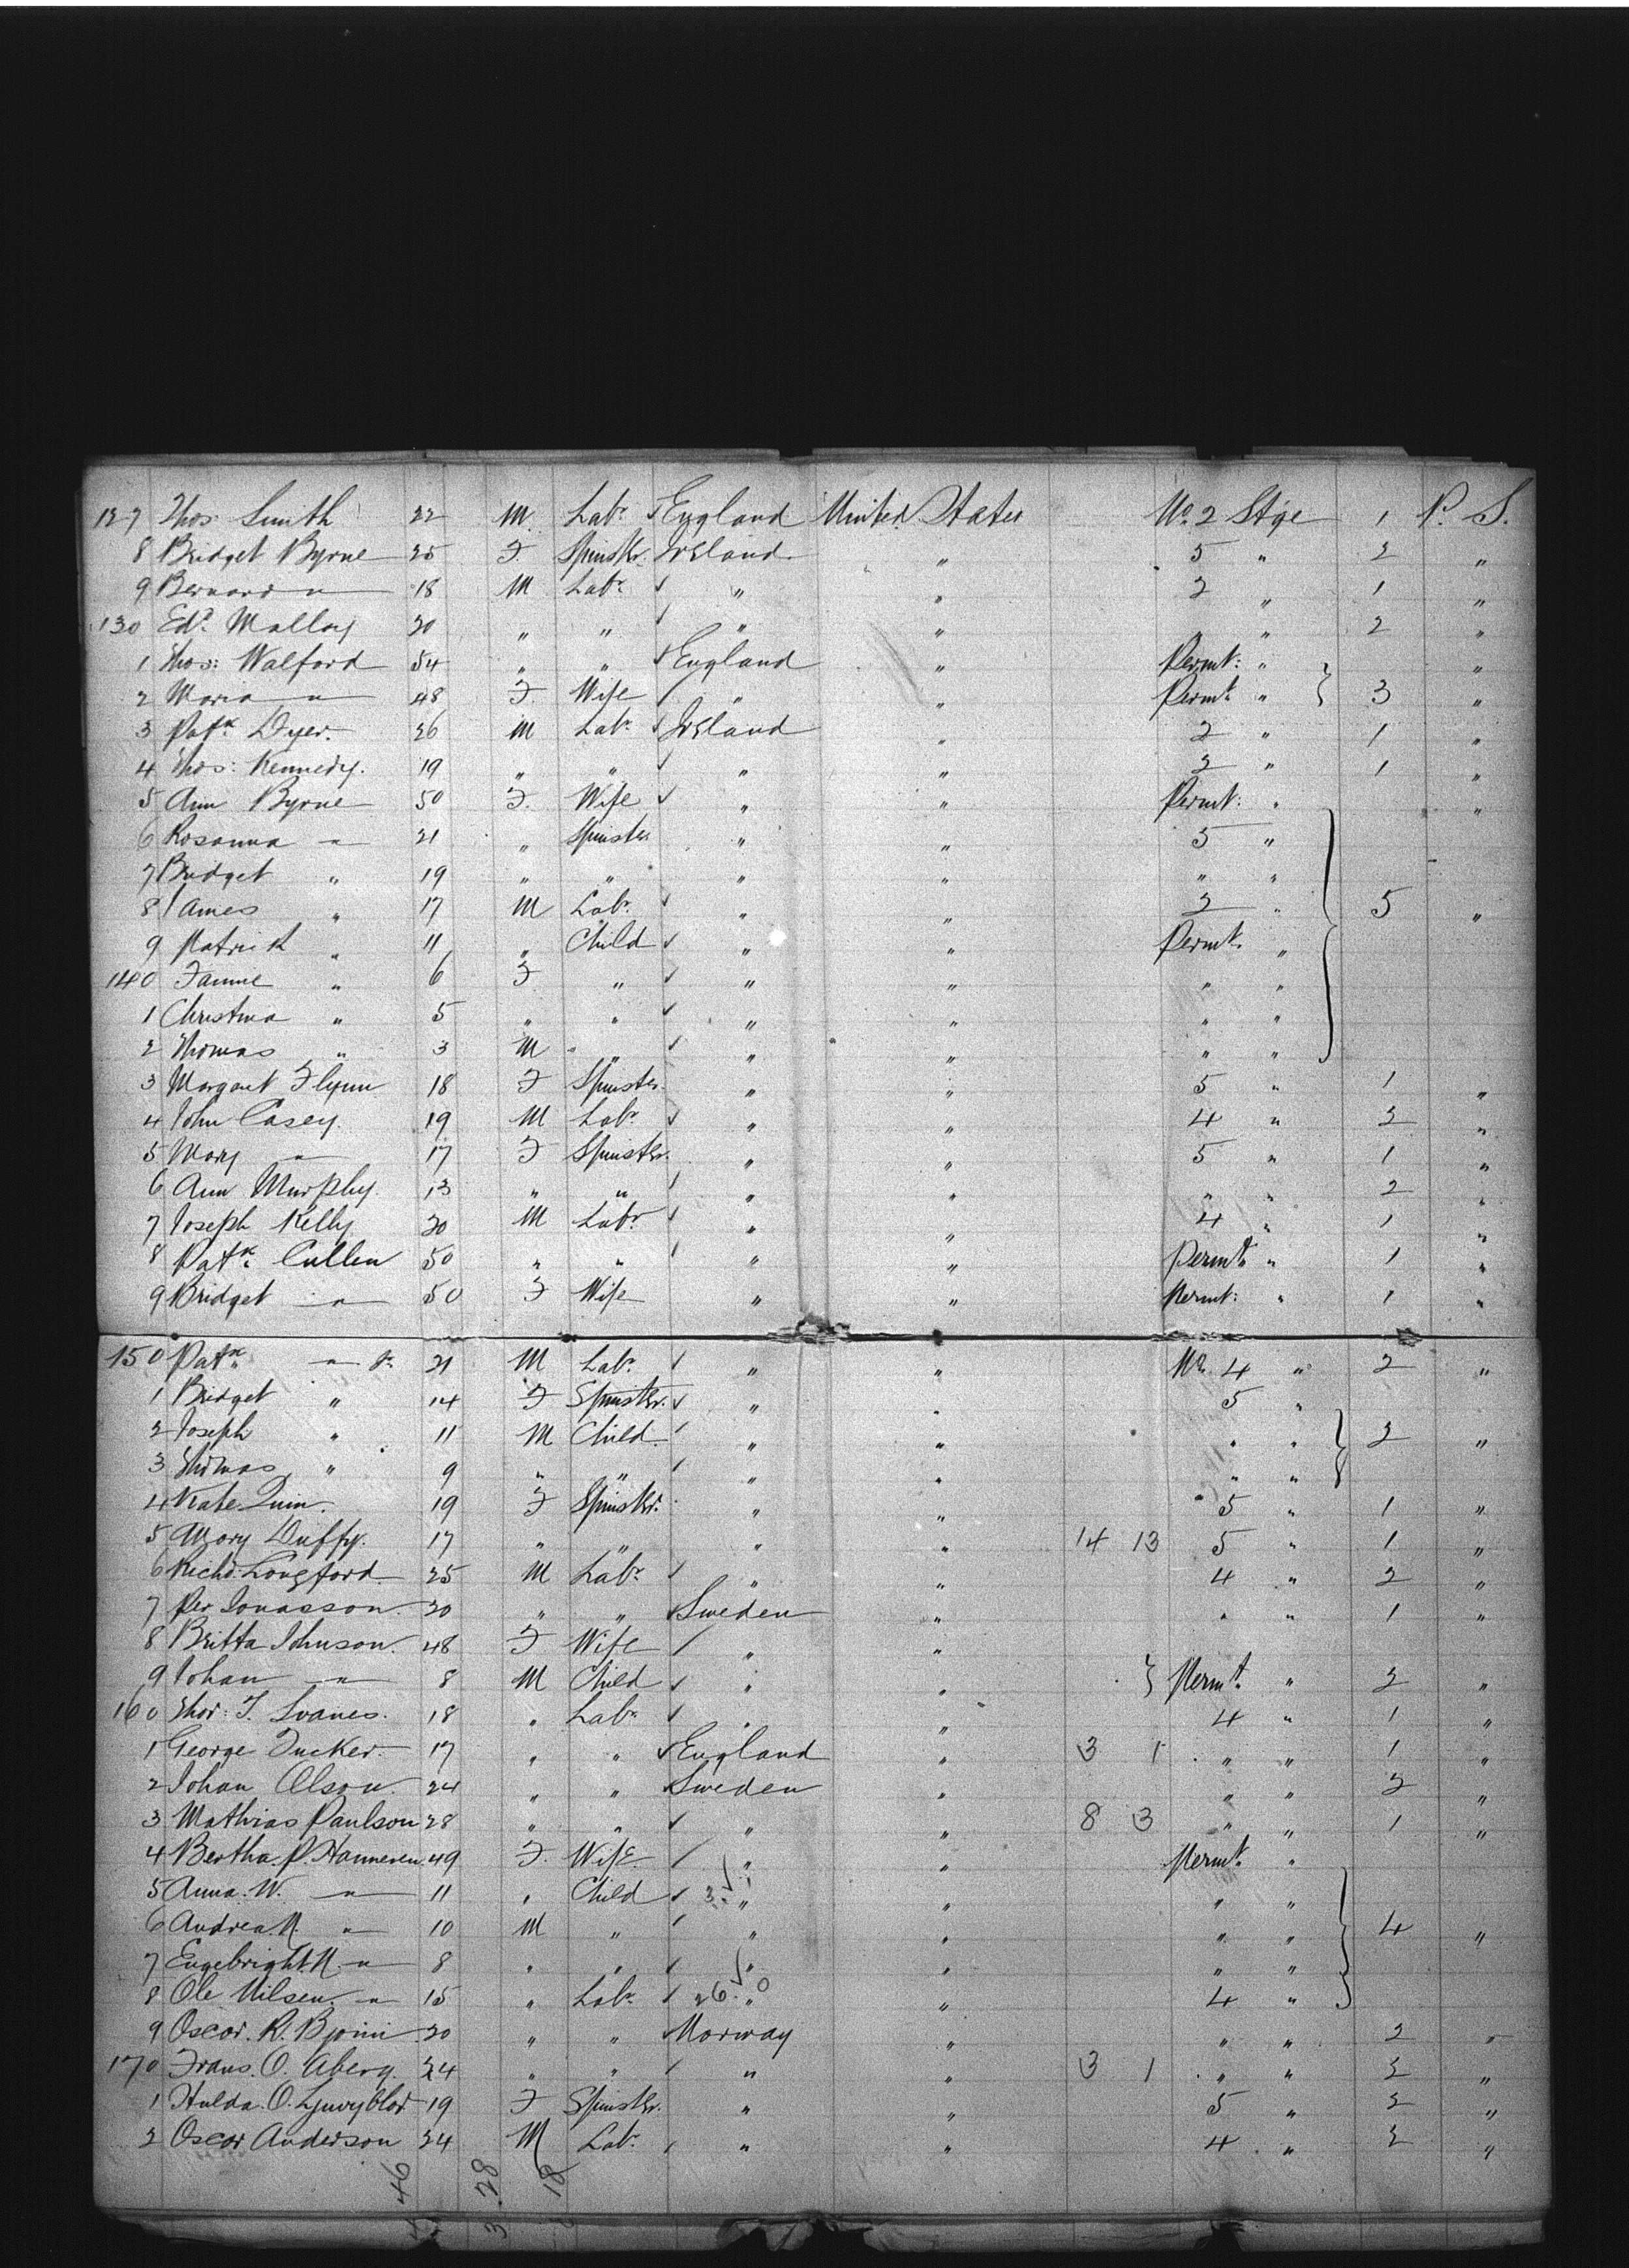 127 Thos. Smith 22 M. Labr. England United States No. 2 Stge 1 P. S.
8 Bridget Byrne 25 F. Spinstr. Ireland " 5 " 2 "
9 Bernard " 18 M Labr. " " 2 " 1 "
130 Edd. Malloy 20 " " " " " " 2 "
1 Thos: Walford 54 " " England " Permt: " "
2 Maria " 48 F. Wife " " Permt. " } 3 "
3 Patk. Dyer. 26 M Labr. Ireland " 2 " 1 "
4 Thos: Kennedy. 19 " " " " 2 " 1 "
5 Ann Byrne 50 F. Wife " " Permt: " "
6 Rosanna " 21 " Spinster " " 5 "
7 Bridget " 19 " " " " " "
8 James " 17 M Labr. " " 2 " 5 "
9 Patrick " 11 " Child " " Permt. "
140 Fannie " 6 F " " " " "
1 Christina " 5 " " " " " "
2 Thomas " 3 M " " " " "
3 Margaret Flynn 18 F Spinster. " " 5 " 1 "
4 John Casey. 19 M Labr. " " 4 " 2 "
5 Mary " 17 F Spinster. " " 5 " 1 "
6 Ann Murphy. 13 " " " " " " 2 "
7 Joseph Kelly 20 M Labr. " " 4 " 1 "
8 Patk. Cullen 50 " " " " Permt. " 1 "
9 Bridget " 50 F Wife " " Permt: " 1 "
150 Patk. " Jr. 21 M Labr. " " No. 4 " 2 "
1 Bridget " 14 F Spinster. " " 5 "
2 Joseph " 11 M Child. " " " " } 2 "
3 Thomas " 9 " " " " " "
4 Kate Quin. 19 F Spinstr. " " 5 " 1 "
5 Mary Duffy. 17 " " " " 14 13 5 " 1 "
6 Richd. Longford 25 M Labr. " " 4 " 2 "
7 Per Jonasson. 20 " " Sweden " " " 1 "
8 Britta Johnson. 48 F Wife " "
9 Johan " 8 M Child " " } Permt. " 2 "
160 Thor: T. Svanes. 18 " Labr. " " 4 " 1 "
1 George Tucker. 17 " " England " 3 1 " " 1 "
2 Johan Olson. 24 " " Sweden " " " 2 "
3 Mathias Paulson 28 " " " " 8 3 " " 1 "
4 Bertha. P. Hanneren. 49 F. Wife. " " Permt. "
5 Anna. W. " 11 " Child 3. " " " "
6 Andrea N. " 10 M " " " " " 4 "
7 Engebright. N. " 8 " " " " " "
8 Ole Nilsen. " 15 " Labr. 26. 0 " " 4 "
9 Oscar. R. Bjorni 20 " " Norway " " " 2 "
170 Frans. O. Aberg. 24 " " " " 3 1 " " 2 "
1 Hulda. O. 19 F Spinstr. " " 5 " 2 "
2 Oscar Anderson 24 M Labr. " " 4 " 2 "
46 3.28 18